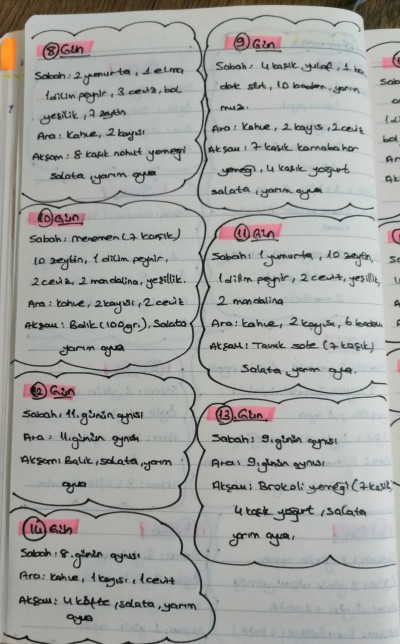 8 Gün
Sabah: 2 yumurta, 1 elma
1 dilim peynir, 3 ceviz, bol
yeşillik, 7 zeytin
Ara: Kahve, 2 kayısı
Akşam: 8 kaşık nohut yemeği
salata, yarım ayva
9 Gün
Sabah: 4 kaşık yulaf, 1 bar
dak süt, 10 badem, yarım
muz.
Ara: Kahve, 2 kayısı, 2 ceviz
Akşam: 7 kaşık karnabahar
yemeği, 4 kaşık yoğurt
salata, yarım ayva
10 Gün
Sabah: Menemen (7 kaşık)
10 zeytin, 1 dilim peynir,
2 ceviz, 2 mandalina, yeşillik.
Ara: Kahve, 2 kayısı, 2 ceviz
Akşam: Balık (100gr.), Salata
yarım ayva
11 Gün
Sabah: 1 yumurta, 10 zeytin,
1 dilim peynir, 2 ceviz, yeşillik,
2 mandalina
Ara: Kahve, 2 kayısı, 6 badem
Akşam: Tavuk sote (7 kaşık)
Salata, yarım ayva.
12 Gün
Sabah: 11. günün aynısı
Ara: 11. günün aynısı
Akşam: Balık, salata, yarım
ayva
13. Gün
Sabah: 9. günün aynısı
Ara: 9. günün aynısı
Akşam: Brokoli yemeği (7 kaşık)
4 kaşık yoğurt, salata
yarım ayva,
14 Gün
Sabah: 8. günün aynısı
Ara: Kahve, 1 kayısı, 1 ceviz
Akşam: 4 köfte, salata, yarım
ayva